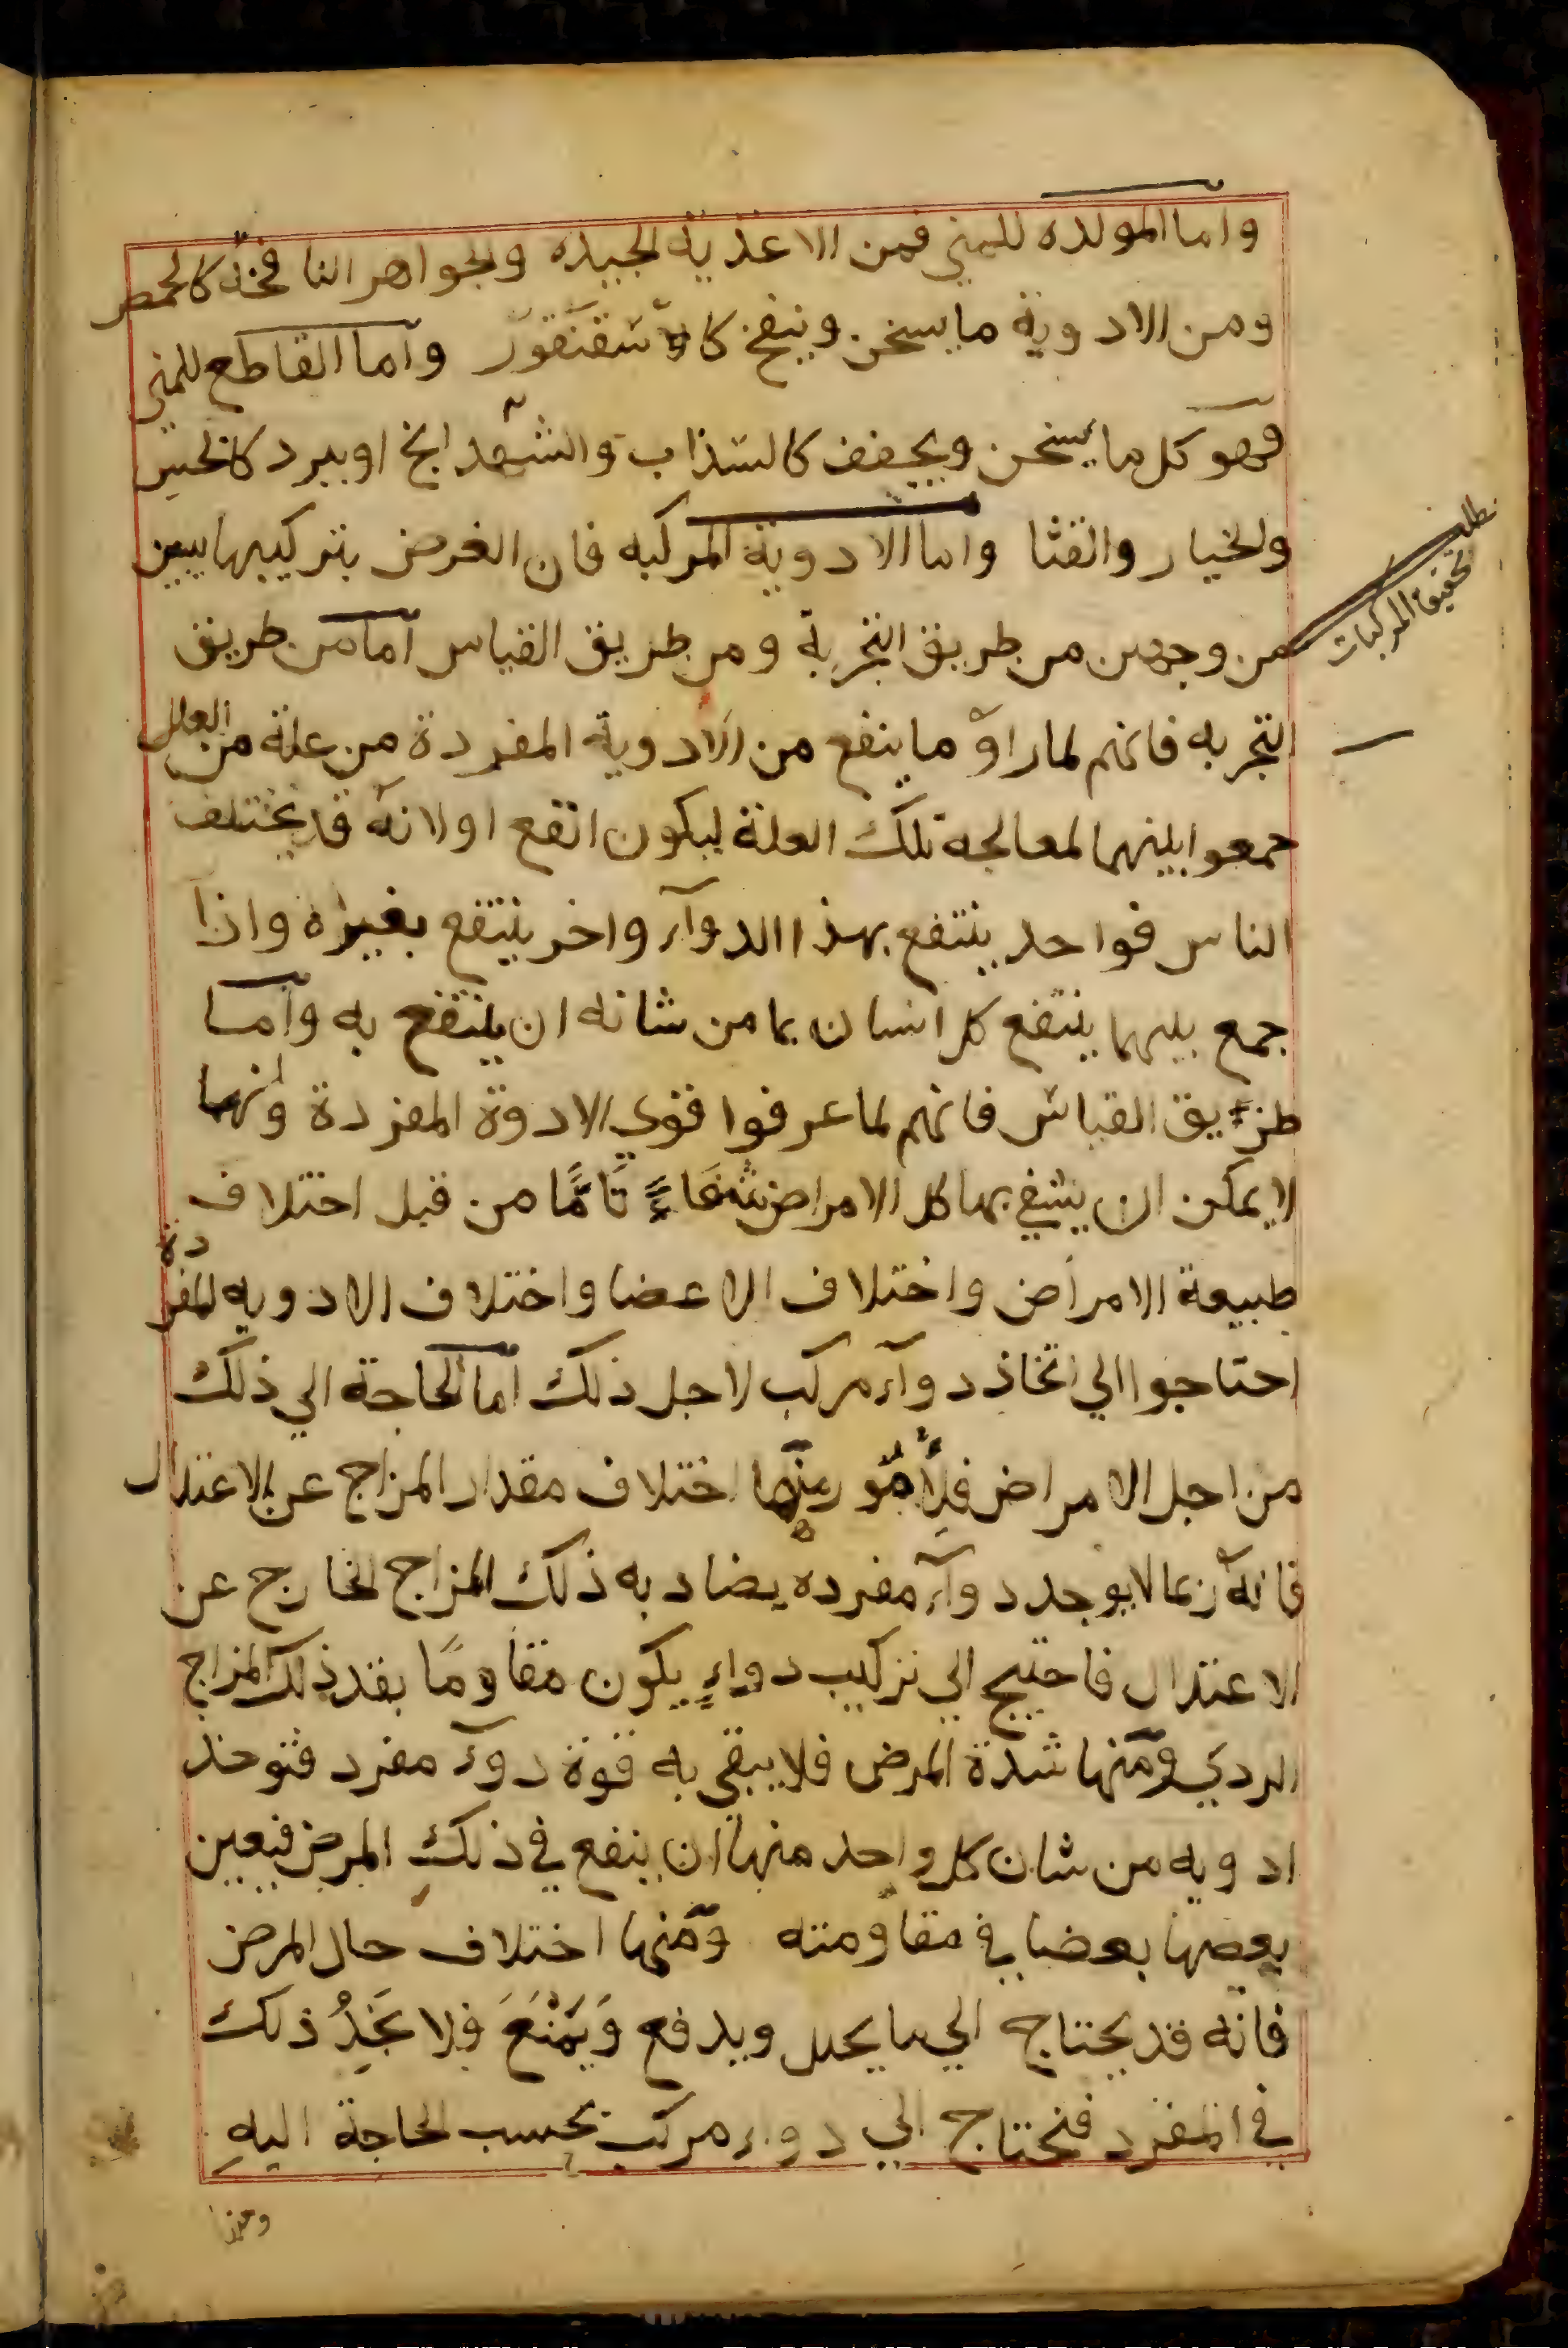 واما المولده للمني فمن الاغذية الجيده والجواهر النافخة كالحمص
ومن الادوية ما يسخن وينفخ كالاسقنقور واما القاطع للمني
فهو كل ما يسخن ويجفف كالسذاب والشهدانج او يبرد كالخس
والخيار والقثا واما الادوية المركبه فان الغرض بتركيبها يبين
من وجهين من طريق التجربة ومن طريق القياس اما من طريق
التجربه فانهم لما راوا ما ينفع من الادوية المفردة من علة من العلل
جمعوا بينهما لمعالجة تلك العلة ليكون انفع اولانه قد يختلف
الناس فواحد ينتفع بهذا الدوآء واخر ينتفع بغيره واذا
جمع بينهما ينتفع كل انسان بما من شانه ان ينتفع به واما
طريق القياس فانهم لما عرفوا قوي الادوة المفردة وانها
لا يمكن ان يشفي بها كل الامراض شفاءً تامًّا من قبل اختلاف
طبيعة الامراض واختلاف الاعضا واختلاف الادويه المفردة
احتاجوا الي اتخاذ دوآء مركب لاجل ذلك اما الحاجة الي ذلك
من اجل الامراض فلأمور منها اختلاف مقدار المزاج عن الاعتدال
فانه ربما لا يوجد دوآء مفرده يضاد به ذلك المزاج الخارج عن
الاعتدال فاحتيج الي تركيب دواءٍ يكون مقاومًا بقدر ذلك المزاج
الردي ومنها شدة المرض فلا يبقي به قوة دوآء مفرد فتوخذ
ادويه من شان كل واحد منها ان ينفع في ذلك المرض فيعين
بعضها بعضا في مقاومته ومنها اختلاف حال المرض
فانه قد يحتاج الي ما يحلل ويدفع وَيَمْنَعَ فلا نَجِدُ ذلك
في المفرد فنحتاج الي دواء مركب بحسب الحاجة اليهِ
ومنها
تحقيق المركبات